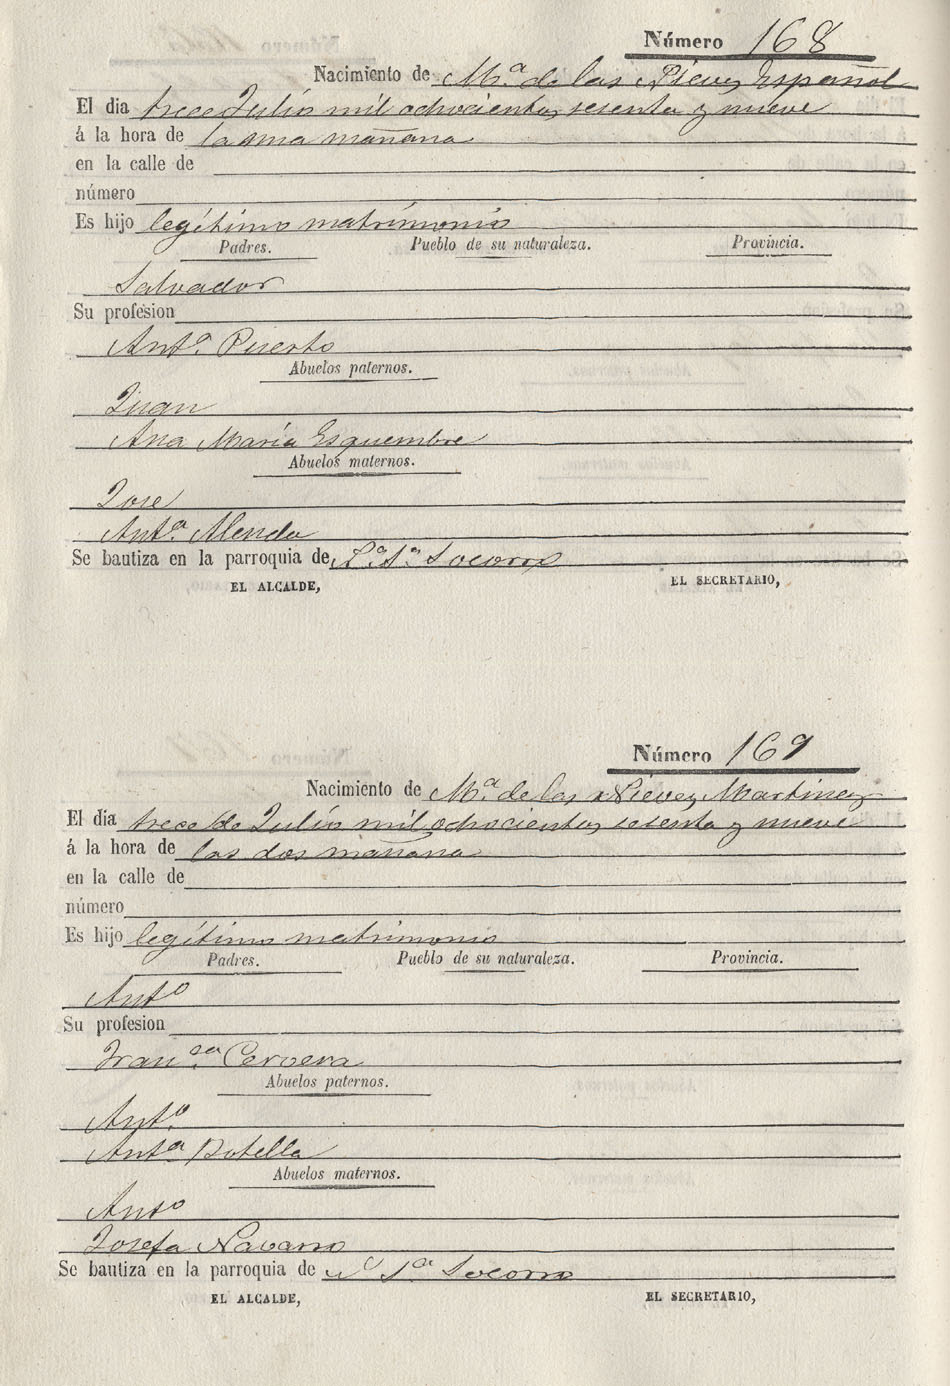 Número 168
Nacimiento de Mª de las Nieves Español
El dia trece Julio mil ochocientos sesenta y nueve
á la hora de la una mañana
en la calle de
número
Es hijo legítimo matrimonio
Padres. Pueblo de su naturaleza. Provincia.
Salvador
Su profesion
Antª Puerto
Abuelos paternos.
Juan
Ana María Esquembre
Abuelos maternos.
Jose
Antª Menda
Se bautiza en la parroquia de Nª Sª Socorro
EL ALCALDE, EL SECRETARIO,
Número 169
Nacimiento de Mª de las Nieves Martinez
El dia trece de Julio mil ochocientos sesenta y nueve
á la hora de las dos mañana
en la calle de
número
Es hijo legítimo matrimonio
Padres. Pueblo de su naturaleza. Provincia.
Antº
Su profesion
Franᶜᵃ Cervera
Abuelos paternos.
Antº
Antª Botella
Abuelos maternos.
Antº
Josefa Navarro
Se bautiza en la parroquia de Nª Sª Socorro
EL ALCALDE, EL SECRETARIO,